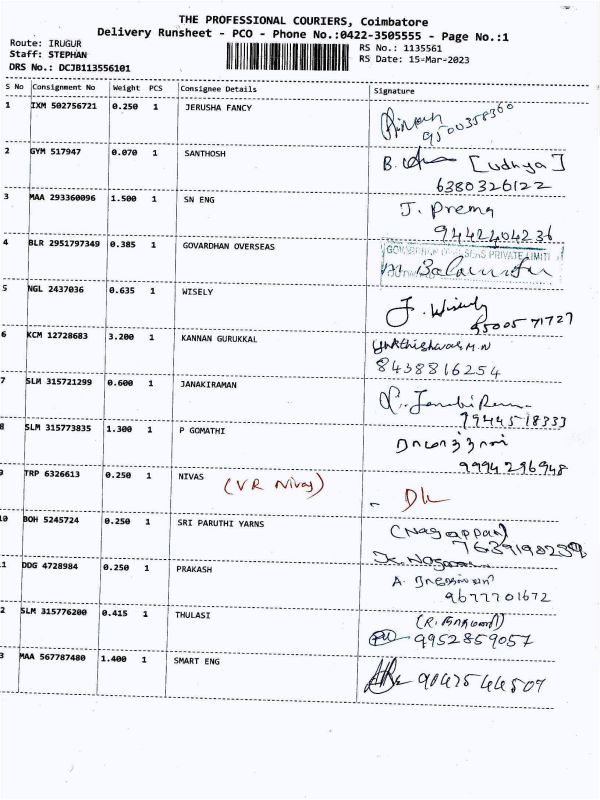 THE PROFESSIONAL COURIERS, Coimbatore
Delivery Runsheet - PCO - Phone No.:0422-3505555 - Page No.:1
Route: IRUGUR
Staff: STEPHAN
DRS No.: DCJB113556101
RS No.: 1135561
RS Date: 15-Mar-2023
S No Consignment No Weight PCS Consignee Details Signature
1 IXM 502756721 0.250 1 JERUSHA FANCY
9500358360
2 GYM 517947 0.070 1 SANTHOSH B. [Udhya]
6380326122
3 MAA 293360096 1.500 1 SN ENG J. Prema
9442404236
4 BLR 2951797349 0.385 1 GOVARDHAN OVERSEAS
5 NGL 2437036 0.635 1 WISELY J. Wisely
9500571727
6 KCM 12728683 3.200 1 KANNAN GURUKKAL
8438816254
7 SLM 315721299 0.600 1 JANAKIRAMAN
7944518333
8 SLM 315773835 1.300 1 P GOMATHI
9994296948
9 TRP 6326613 0.250 1 NIVAS (VR Nivas)
10 BOH 5245724 0.250 1 SRI PARUTHI YARNS (Nagappan)
11 DDG 4728984 0.250 1 PRAKASH
9677701672
12 SLM 315776200 0.415 1 THULASI
9952859057
13 MAA 567787480 1.400 1 SMART ENG